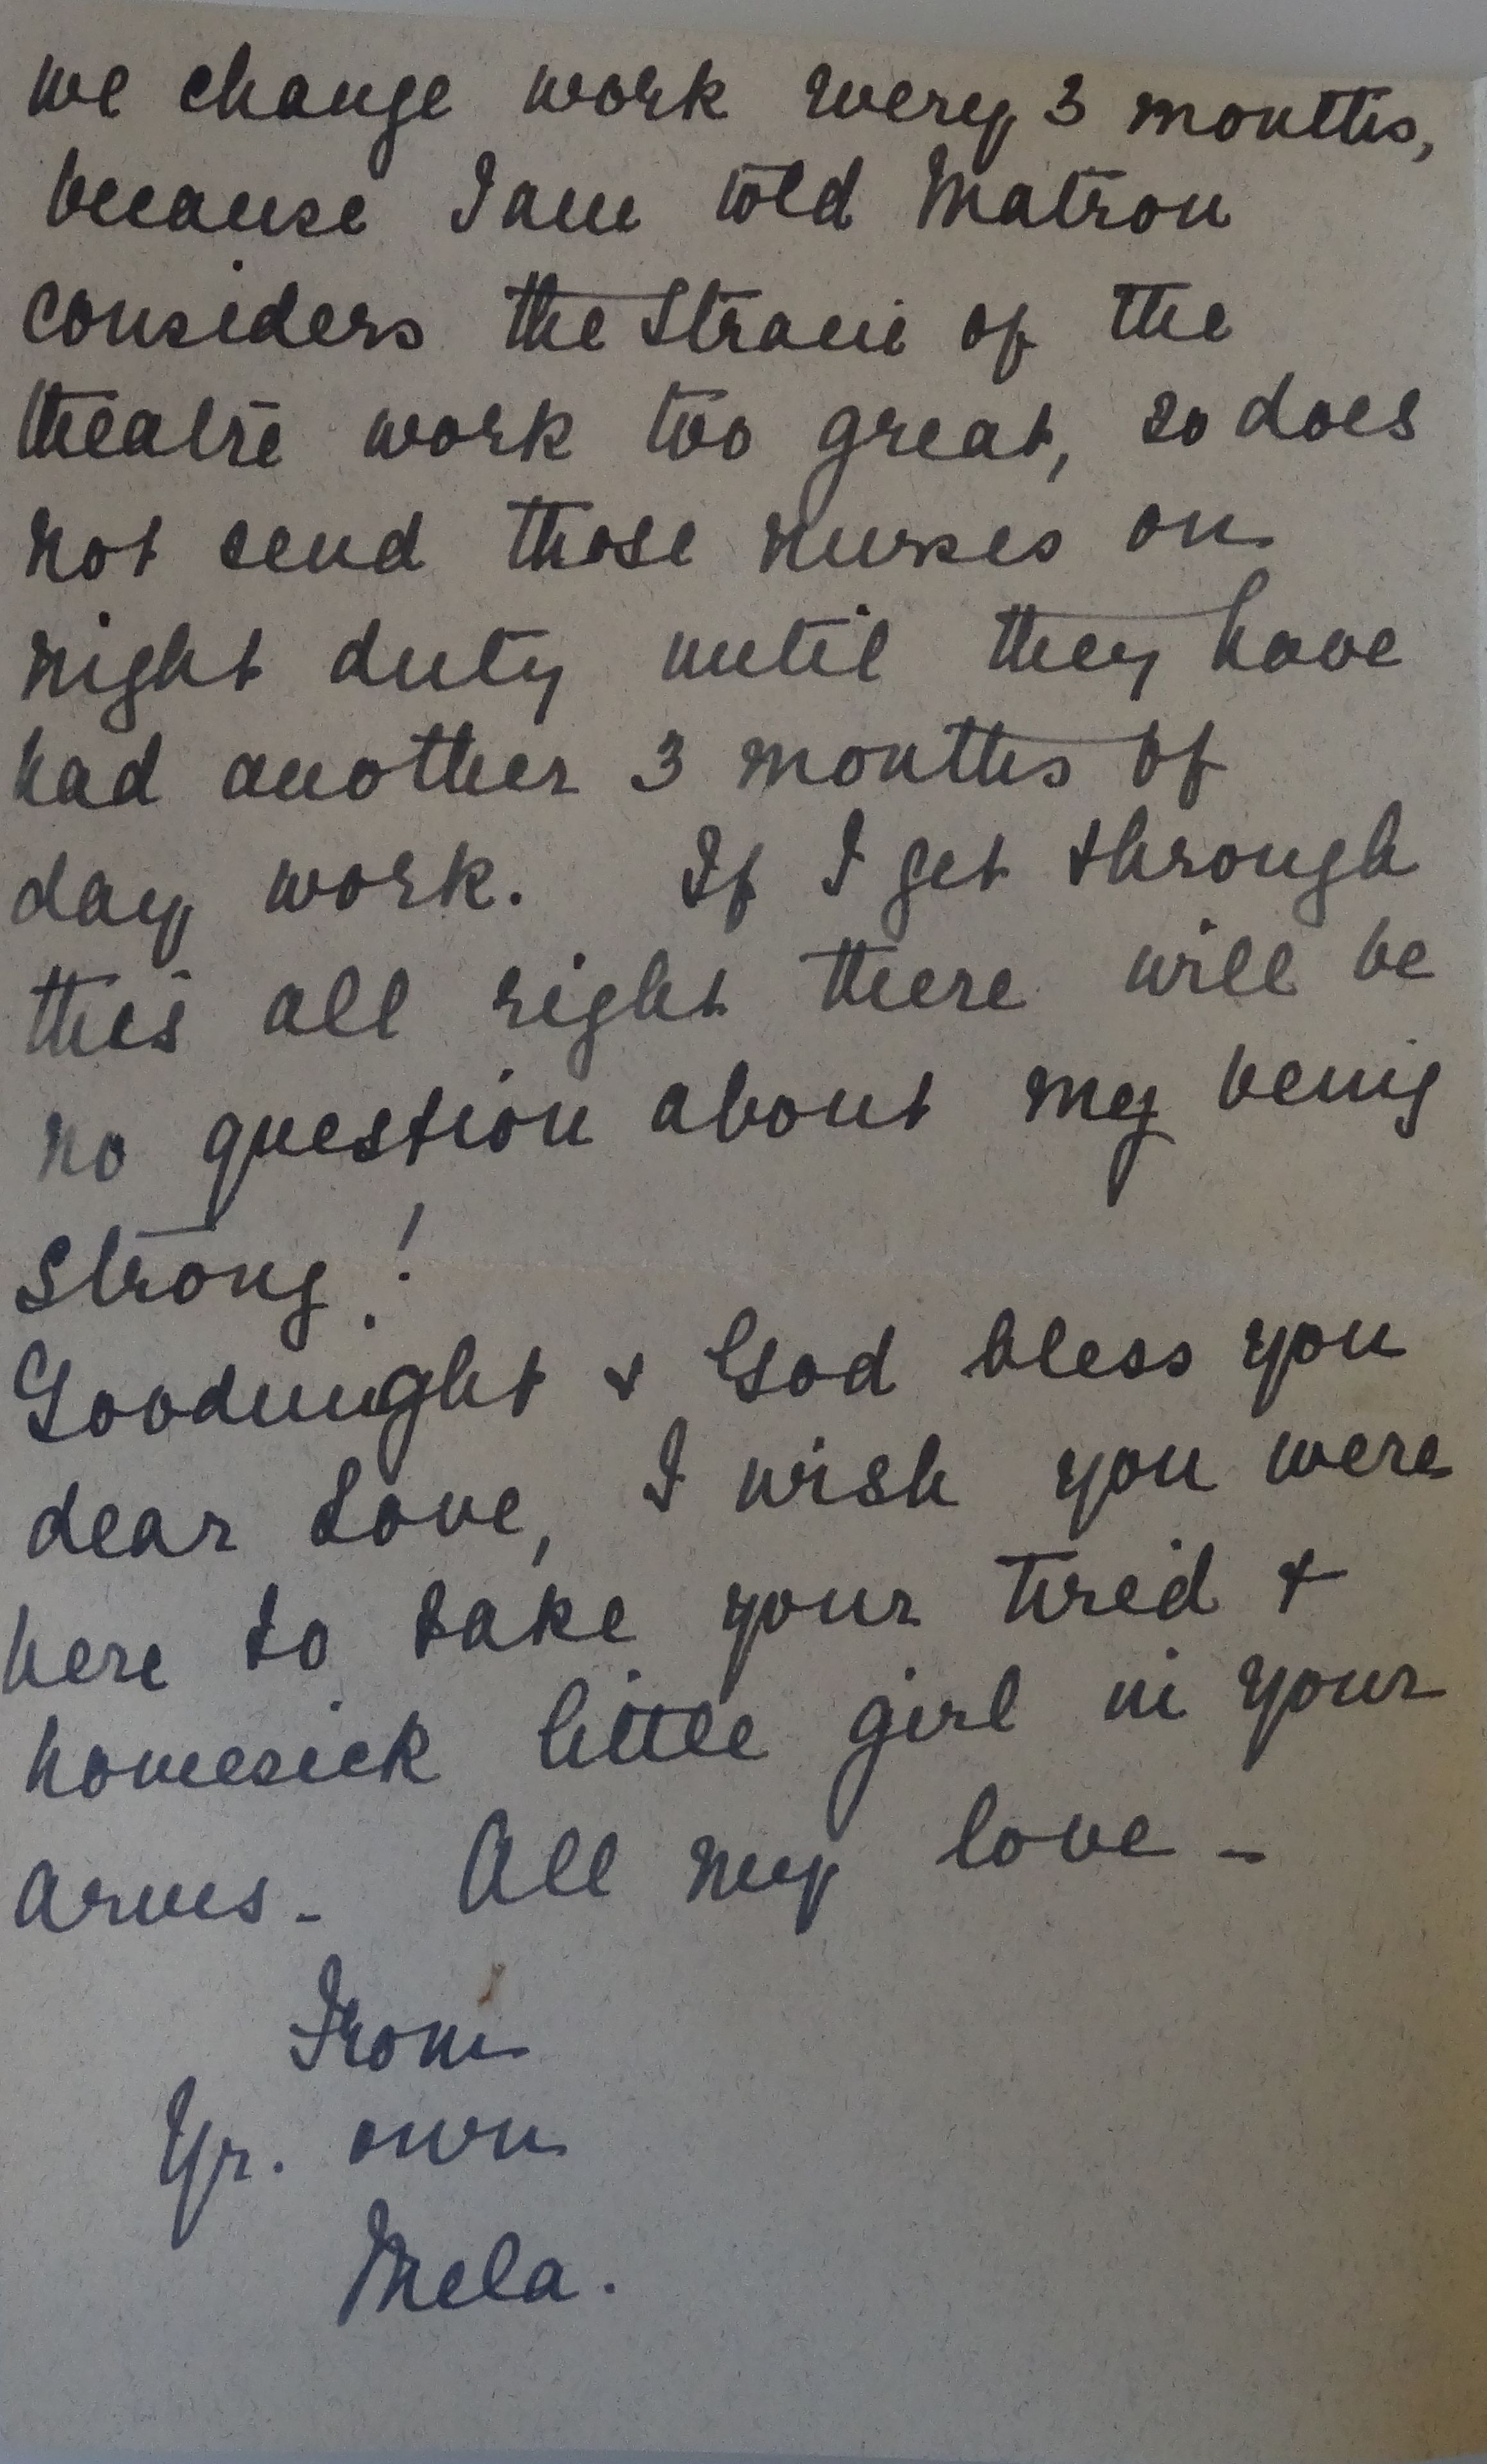 we change work every 3 months,
because I am told Matron
considers the strain of the
theatre work too great, so does
not send those nurses on
night duty until they have
had another 3 months of
day work. If I get through
this all right there will be
no question about my being
strong!
Goodnight & God bless you
dear Love, I wish you were
here to take your tired &
homesick little girl in your
arms - All my love -
From
Yr. own
Mela.